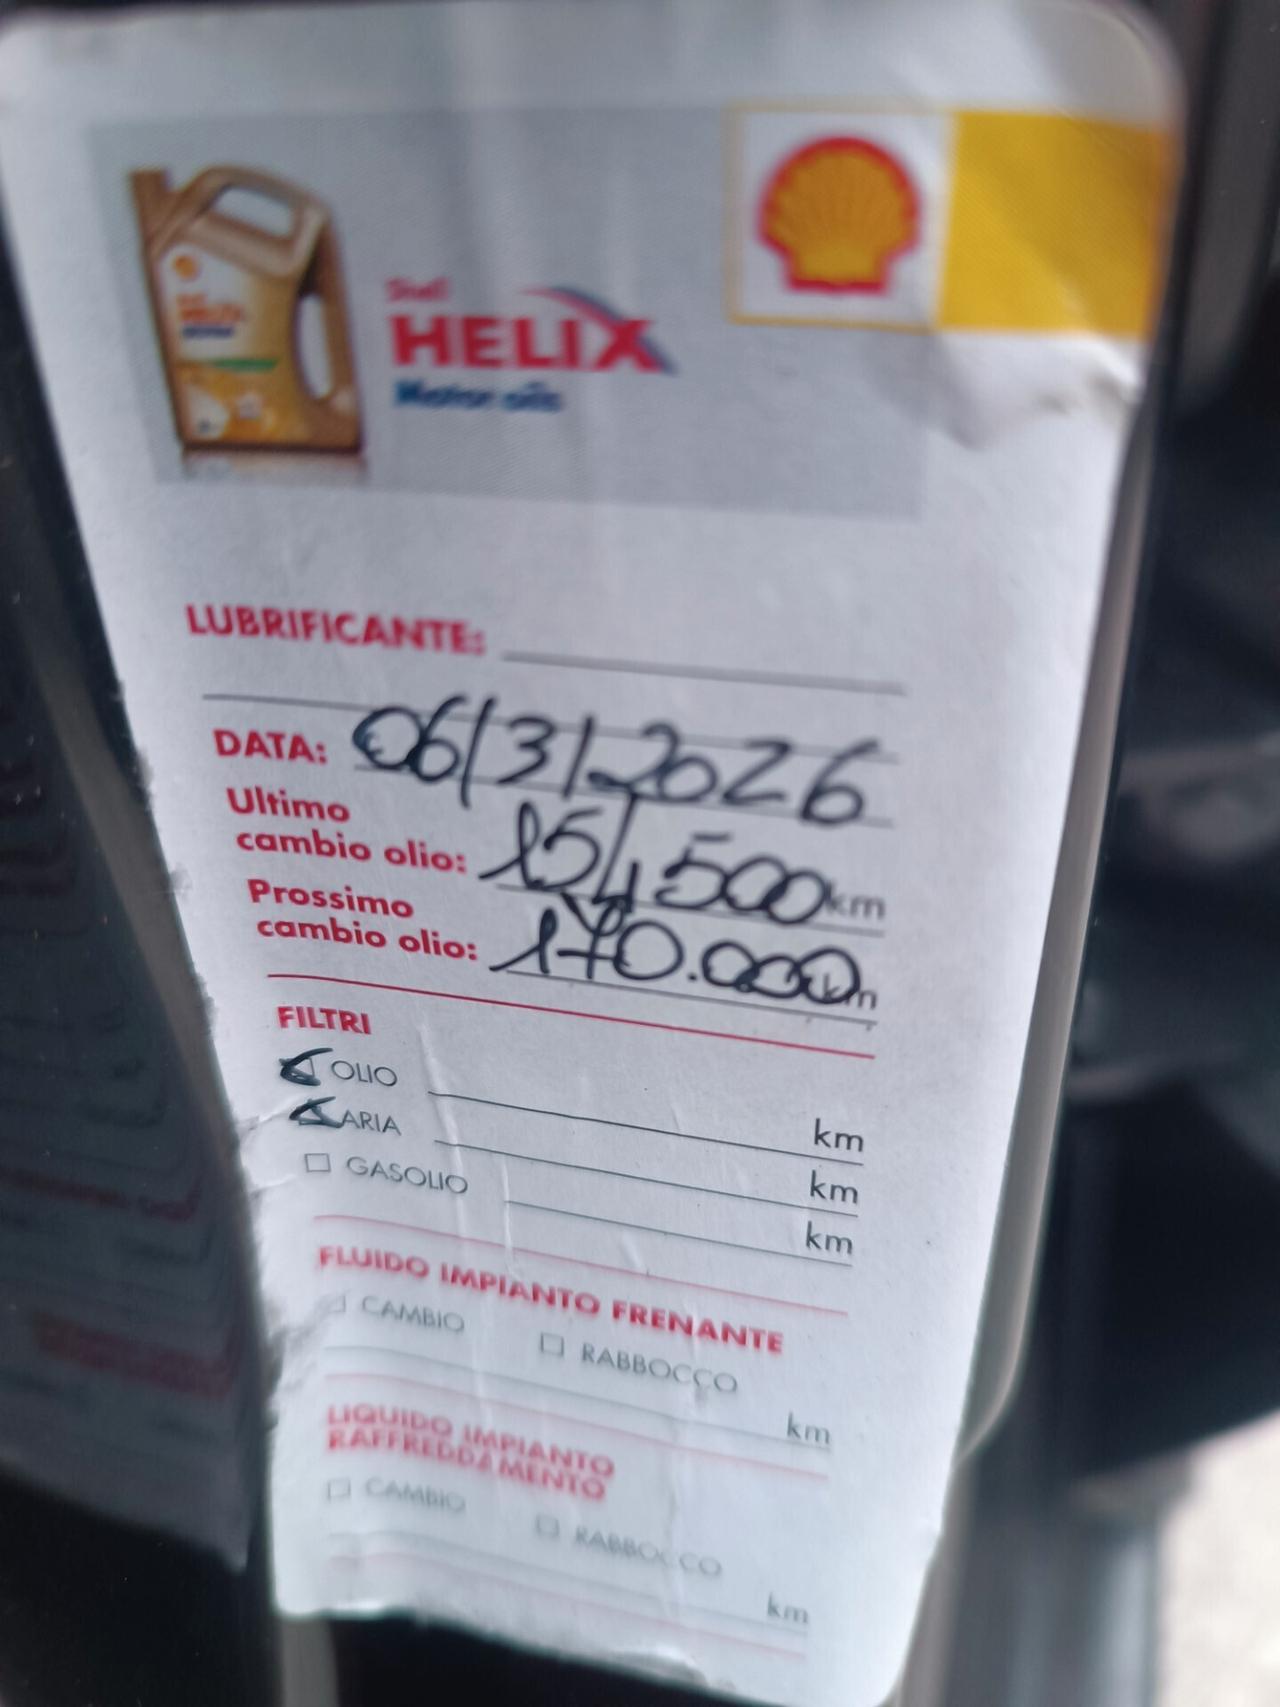 Shell
HELIX
Motor oils
LUBRIFICANTE:
DATA: 06/3/2026
Ultimo
cambio olio: 154,500 km
Prossimo
cambio olio: 170.000 km
FILTRI
OLIO km
ARIA km
GASOLIO km
FLUIDO IMPIANTO FRENANTE
CAMBIO RABBOCCO
km
LIQUIDO IMPIANTO
RAFFREDDAMENTO
CAMBIO RABBOCCO
km